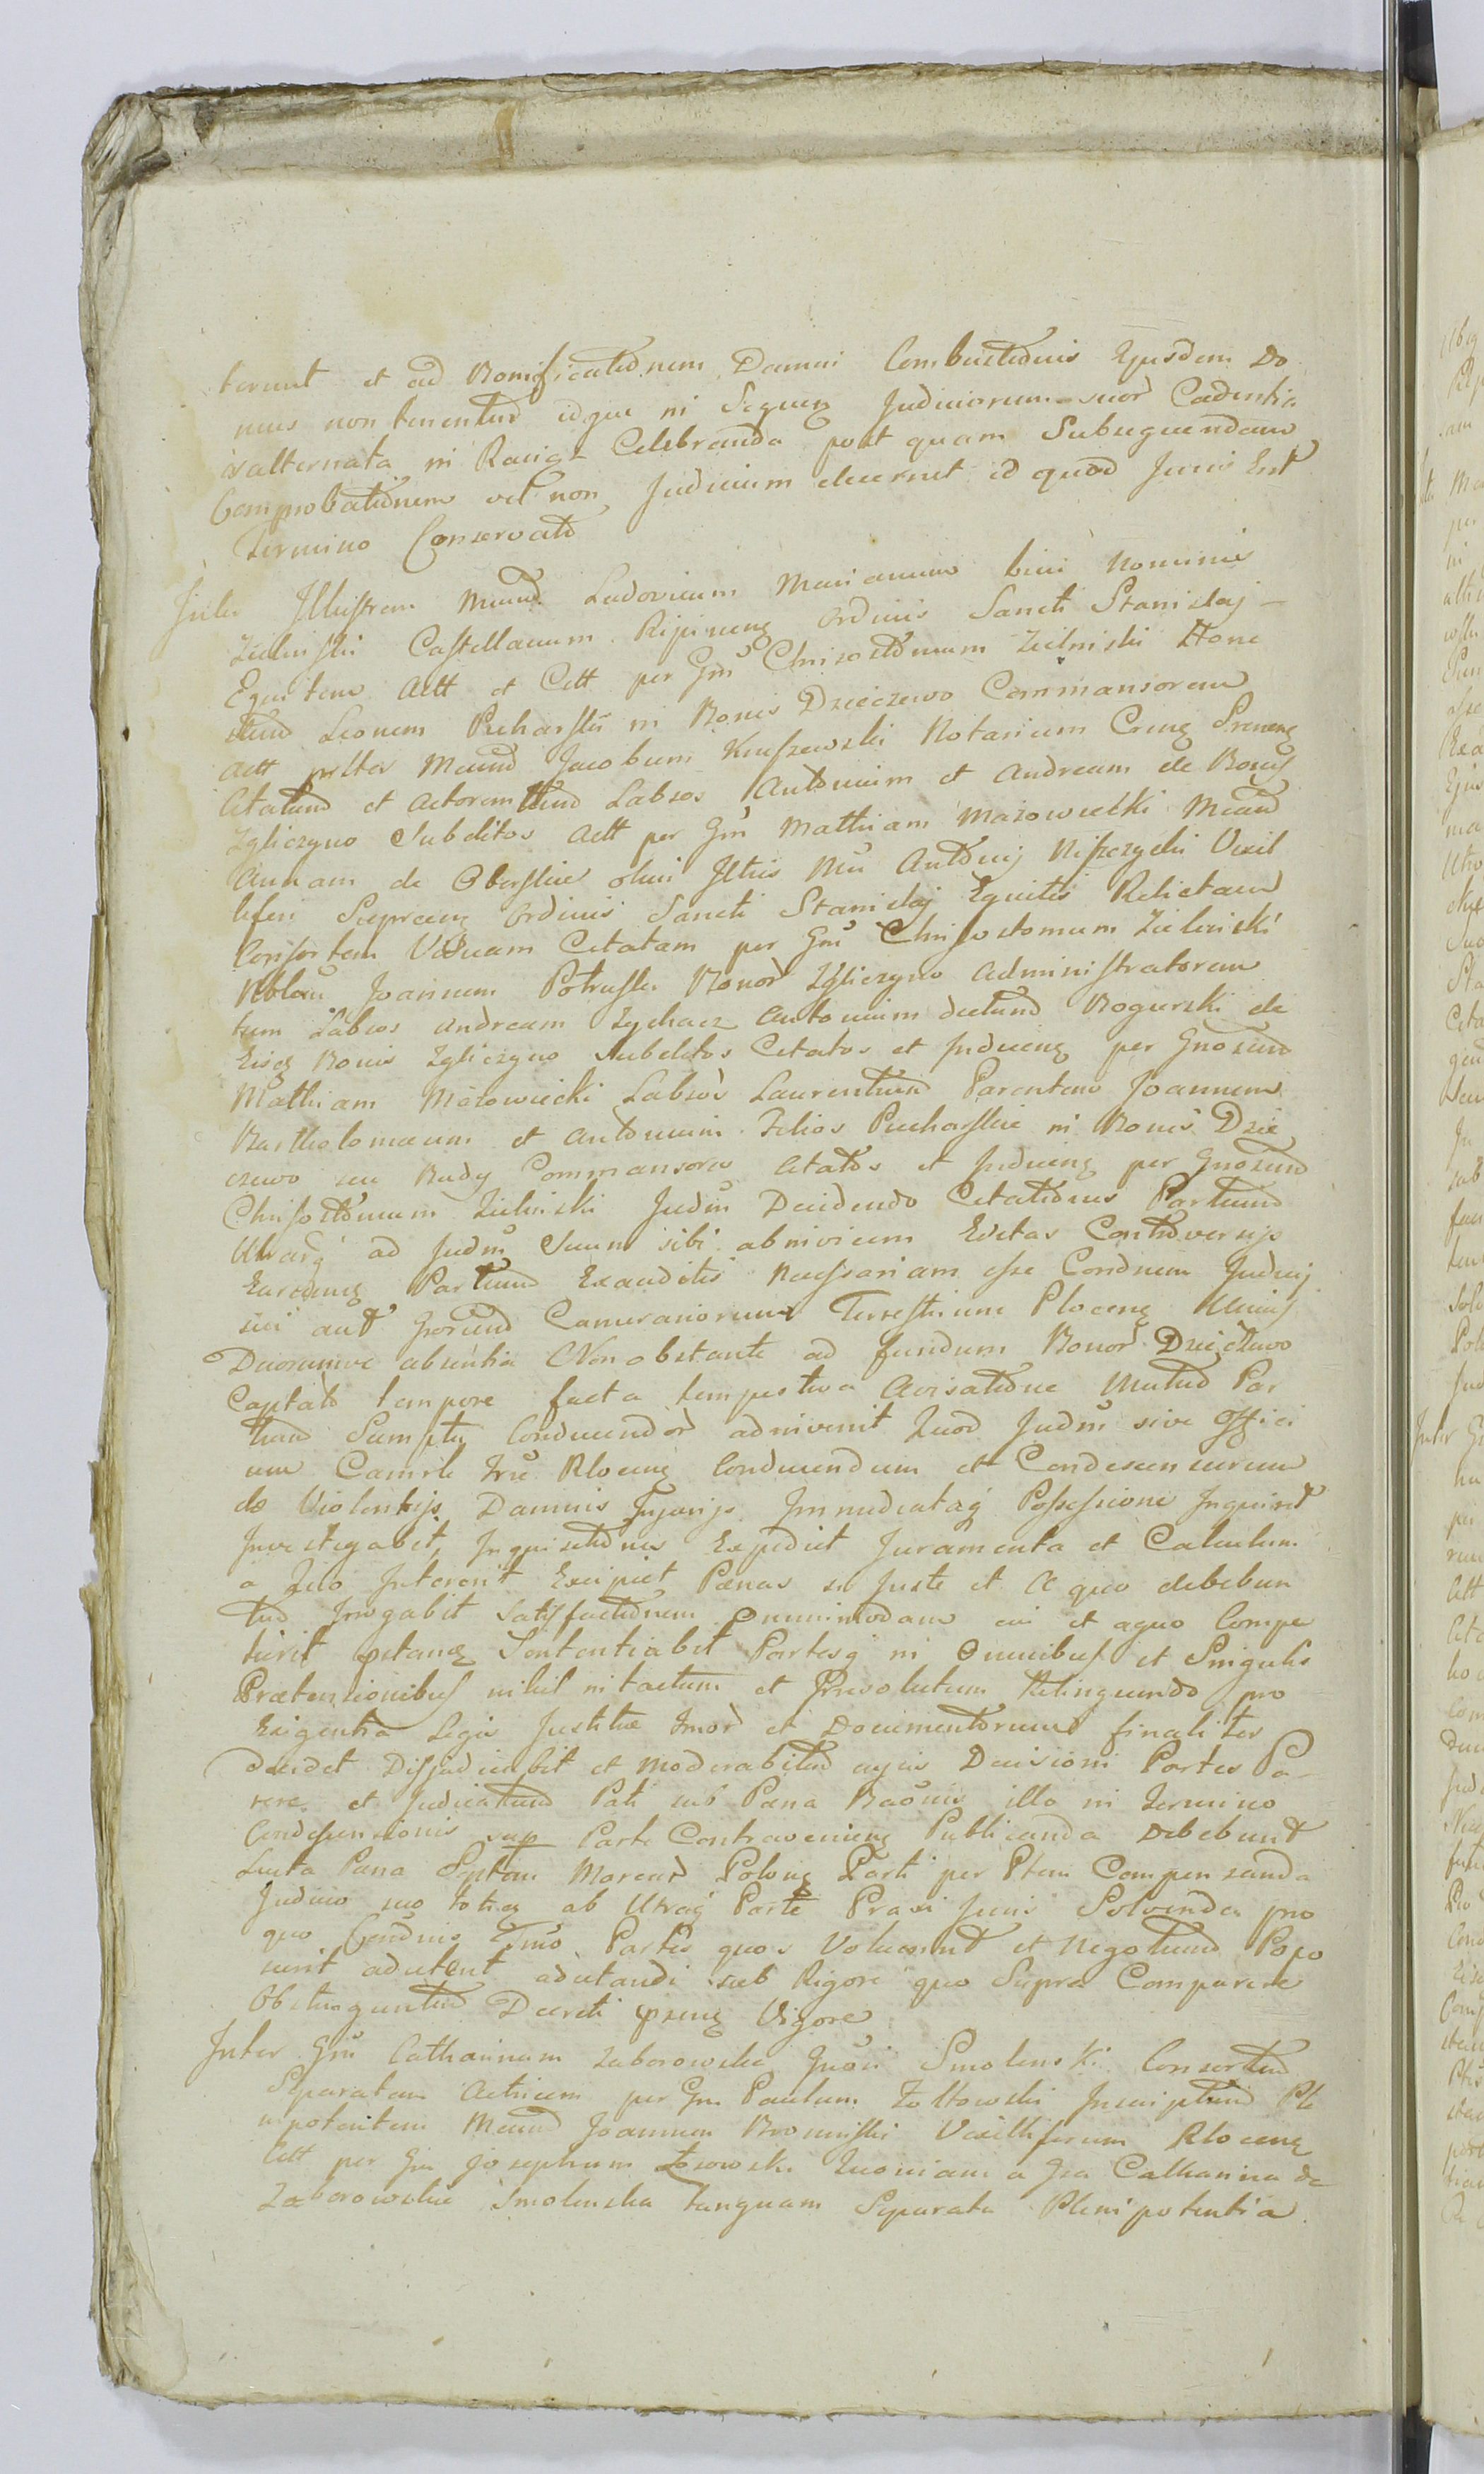 terunt et ad Bonificationem Damni Combustionis Ejusdem Do
mus non tenentur idque in Sequen Judiciorum suor Cadentia
alternata in Raciąz Celebranda post quam Subsequendam
Comprobationem vel non Judicium decernet id quod Juris Erit
Termino Conservato
Inter Illustrem Mgnum Ludovicum Marianum bini Nominis
Zielinski Castellanum Ripinen Ordinis Sancti Stanislaj
Equitem Actt et Citt per Gm Chrisostomum Zielinski Hone
stum Leonem Pucharski in Bonis Dzieczewo Commansorem
Actt Jacobum Kruszewski Notarium Sremen
Citatum et Actorem Labsos Antonium et Andream de Bonis
Zgliczyno Subditos Actt per Gm Mathiam Mazowiecki
Annam de Oberskie olim Antonij Niszczycki Vexil
liferi Ordinis Sancti Stanislaj Equitis Relictam
Consortem Viduam Citatam per Gm Chrisostomum Zielinski
Nblem Joannem Potruski Bonor Zgliczyno Administratorem
tum Labsos Andream Zychacz Antonium dictum Rogurski de
Eisq Bonis Zgliczyno Subditos Citatos et Inducen per Gnosum
Mathiam Mazowiecki Labsos Laurentium Parentem Joannem
Bartholomaeum et Antonium Filios Pucharskie in Bonis Dzie
czewo seu Rudy Commansores Citatos et Inducen per Gnosum
Chrisostomum Zielinski Judm Decidendo Citationes Partium
Utraq ad Judm Suum sibi abinvicem Editas Controversijs
Earumq Partium Exauditis Necessariam esse Condnem Judicij
sui aut Gsorum Camerariorum Terrestrium Plocen Unius
Duorumve absentia Non obstante ad fundum Bonor Dzieczewo
Captato tempore facta tempestiva Avisatione Mutuo Par
tium Sumptu Conducendor adinvenit Quod Judm sive Offici
um Plocen Conducendum et Condescensurum
de Violentijs Damnis Injurijs Immediataq Possessione Inquiret
Investigabit, Inquisitiones Expediet Juramenta et Calculum
a Quo Intererit Excipiet Paenas si Juste et a quo debebun
tur Irrogabit Satisfactionem Omnimodam cui et aquo Compe
tierit Sententiabit Partesq in Omnibus et Singulis
Praetensionibus nihil intactum et Irresolutum Relinquendo pro
Exigentia Legis Justitiae et Documentorum finaliter
decidet Disjudicabit et Moderabitur cujus Decisioni Partes Pa
rere et Judicatum Pati sub Paena Banis illo in Termino
Condescensionis sup Parte Contravenien Publicanda Debebunt
Lucta Paena Septem Marcar Polon Parti per Ptem Compensanda
Judicio suo toties ab Utraq Parte Praevi Juris Solvenda pro
quo Condnis Tmo Partes quos Voluerint et Negotium Popo
scerit adcitent adcitandi sub Rigore quo Supra Comparere
Obstringuntur Decreti psens Vigore
Inter Gm Catharinam Zaborowska Gnosi Smolenski Consortem
Separatam Actricem per Gm Paulum Zoltowski Inscriptum Ple
nipotentem Joannem Bromirski Vexilliferum Plocen
Citt per Gm Josephum Łosowski Quoniam a Gsa Catharina de
Zaborowskie Smolenska tanquam Separata Plenipotentia